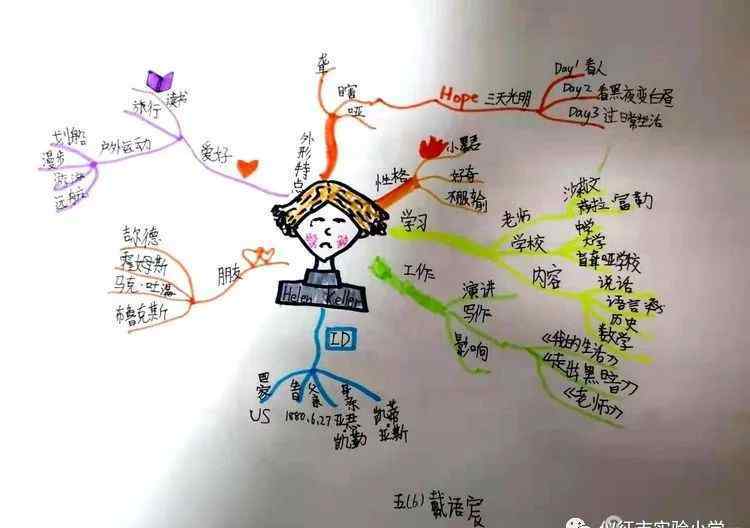 Helen Keller
外形特点
聋
瞎
哑
Hope 三天光明
Day1 看人
Day2 看黑夜变白昼
Day3 过日常生活
性格
好奇
不服输
学习
老师
沙莉文
富勒
学校
中学
大学
盲聋哑学校
内容
说话
语言
历史
数学
工作
演讲
写作
《我的生活》
《走出黑暗》
《老师》
影响
ID
国家
US
1880.6.27
父亲
亚瑟·凯勒
母亲
凯蒂·亚当斯
朋友
马克·吐温
布鲁克斯
爱好
读书
旅行
户外运动
划船
漫步
游泳
远航
五(6) 戴语宸
仪征市实验小学